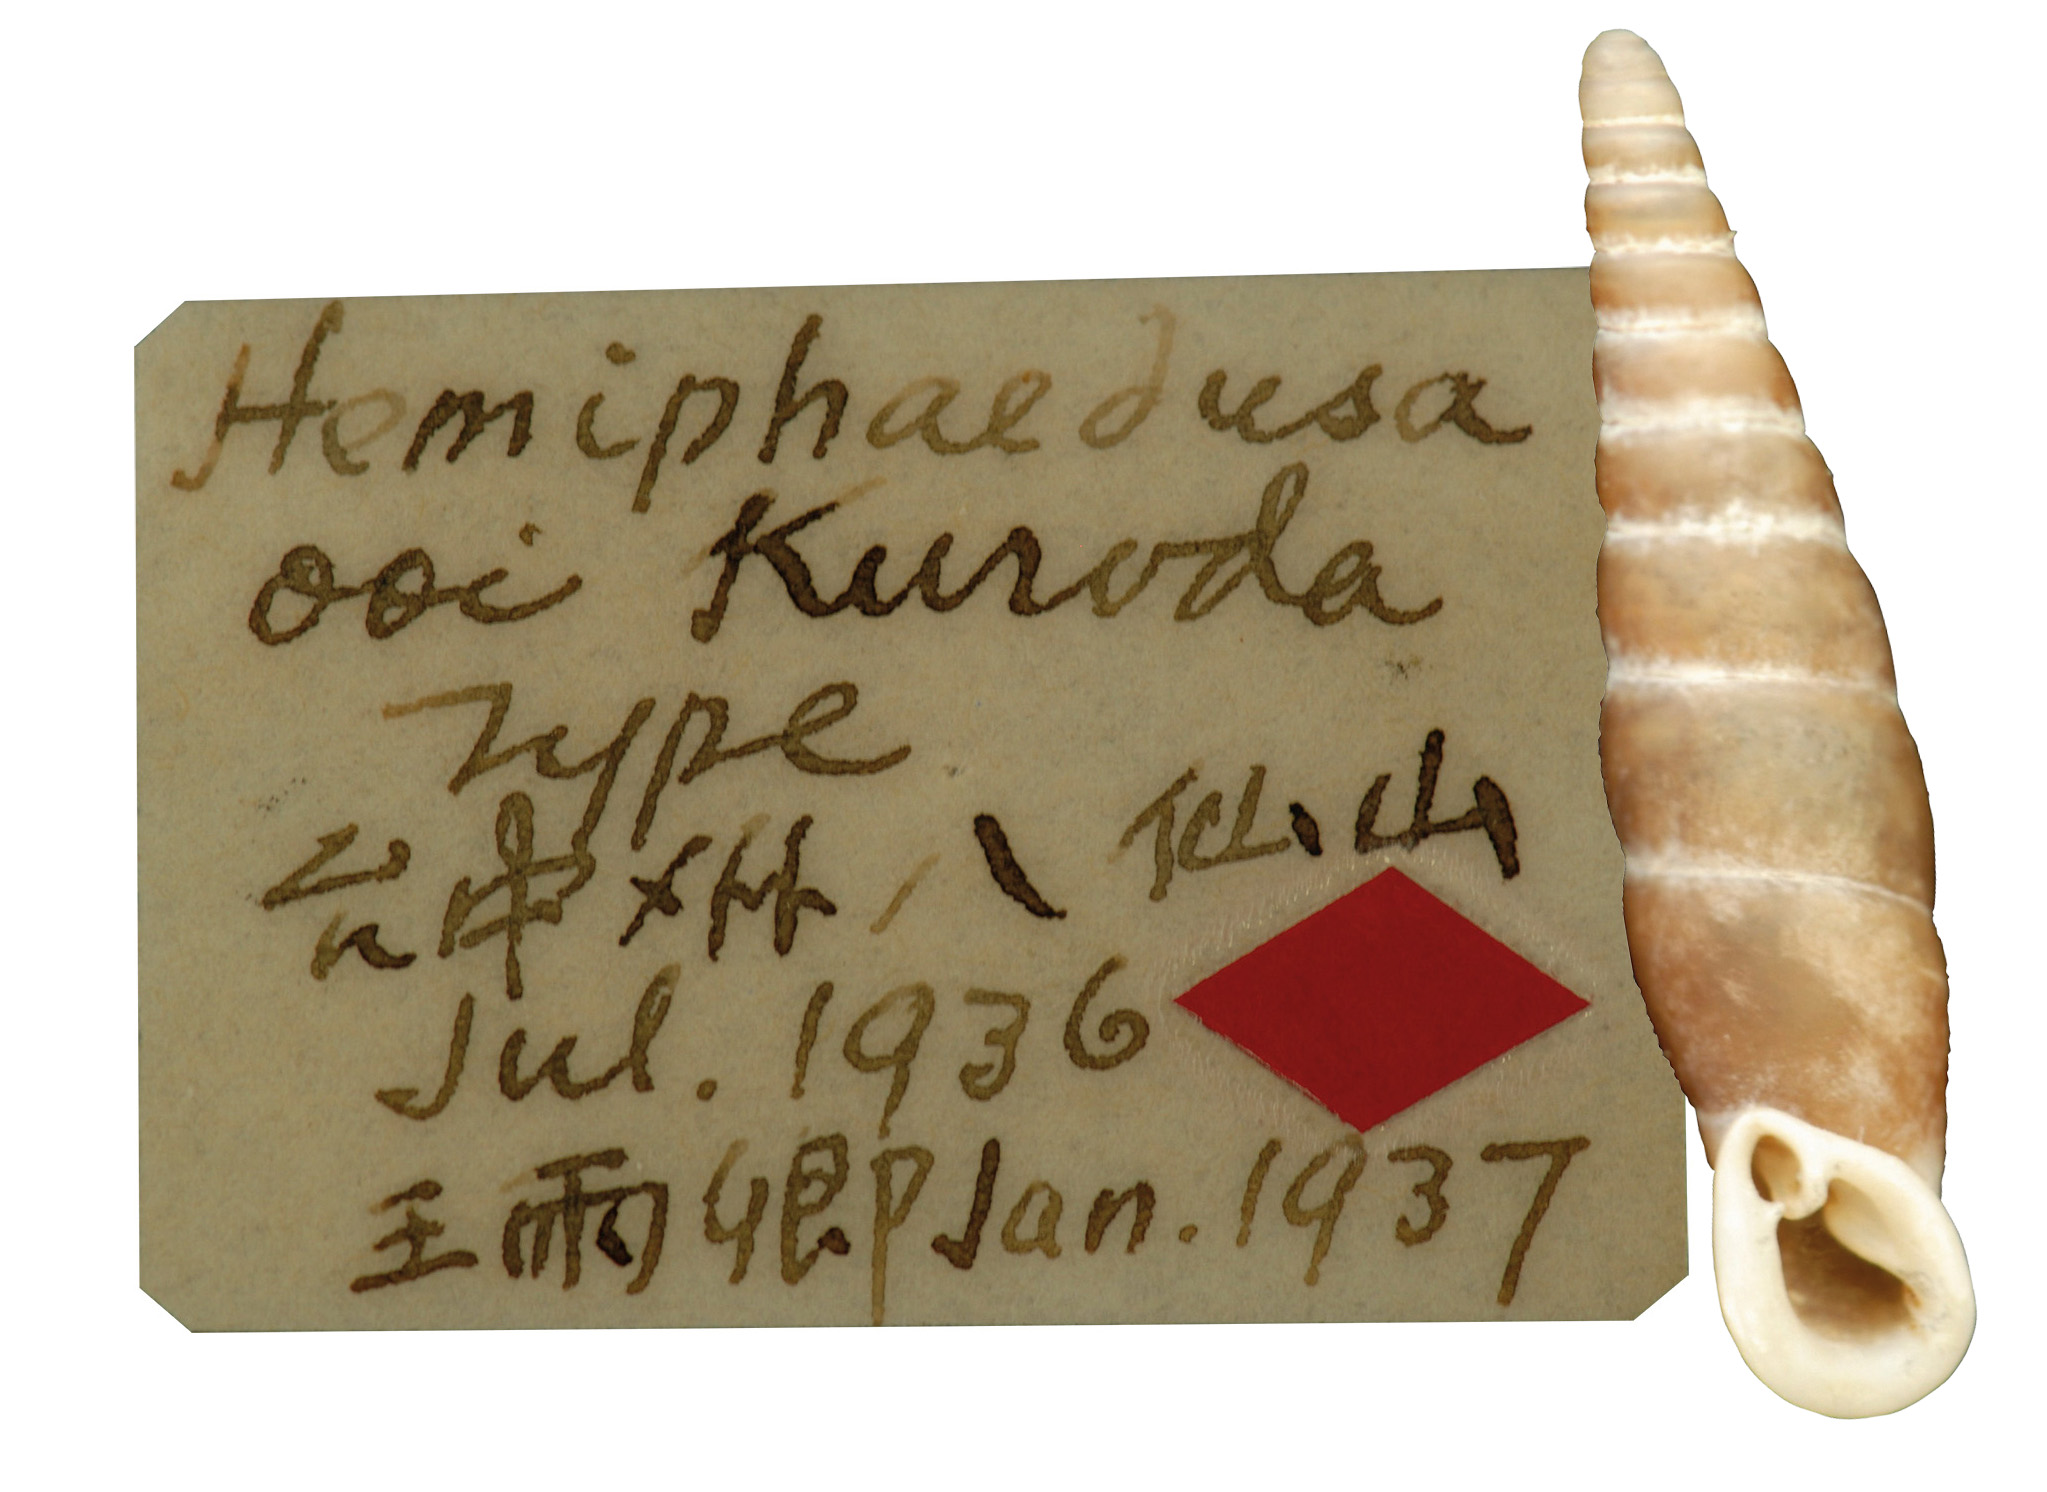 Hemiphaedusa
ooi Kuroda
Type
台中州 八仙山
Jul. 1936
王雨卿 Jan. 1937